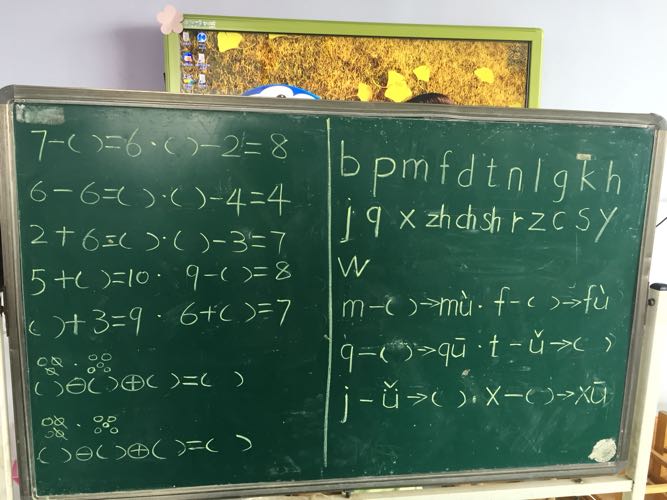 7-( )=6·( )-2=8
6-6=( )·( )-4=4
2+6=( )·( )-3=7
5+( )=10· 9-( )=8
( )+3=9· 6+( )=7
( )⊖( )⊕( )=( )
( )⊖( )⊕( )=( )
b p m f d t n l g k h
j q x zh ch sh r z c s y
w
m-( )→mù· f-( )→fù
q-( )→qū· t-ǔ→( )
j-ǚ→( )· x-( )→xū